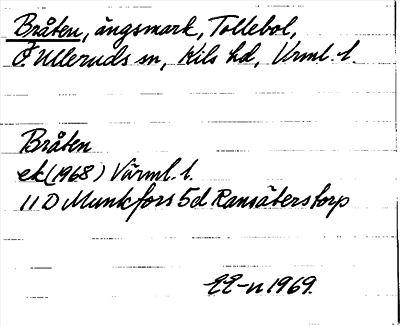 Bråten, ängsmark, Tollebol,
Ö. Ulleruds sn, Kils hd, Vrml. l.
Bråten
ek (1968) Värml. l.
11 D Munkfors 5d Ransäterstorp
1969.